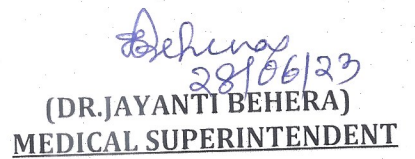 Behera
28/06/23
(DR.JAYANTI BEHERA)
MEDICAL SUPERINTENDENT